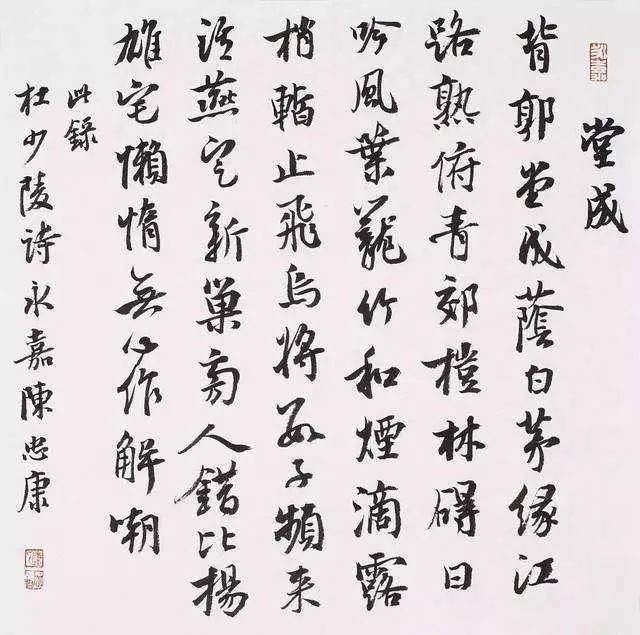 堂成
背郭堂成蔭白茅緣江
路熟俯青郊榿林碍日
吟風葉籠竹和煙滴露
梢暫止飛烏將數子頻来
語燕定新巢旁人錯比揚
雄宅懶惰無心作解嘲
此錄
杜少陵詩永嘉陳忠康